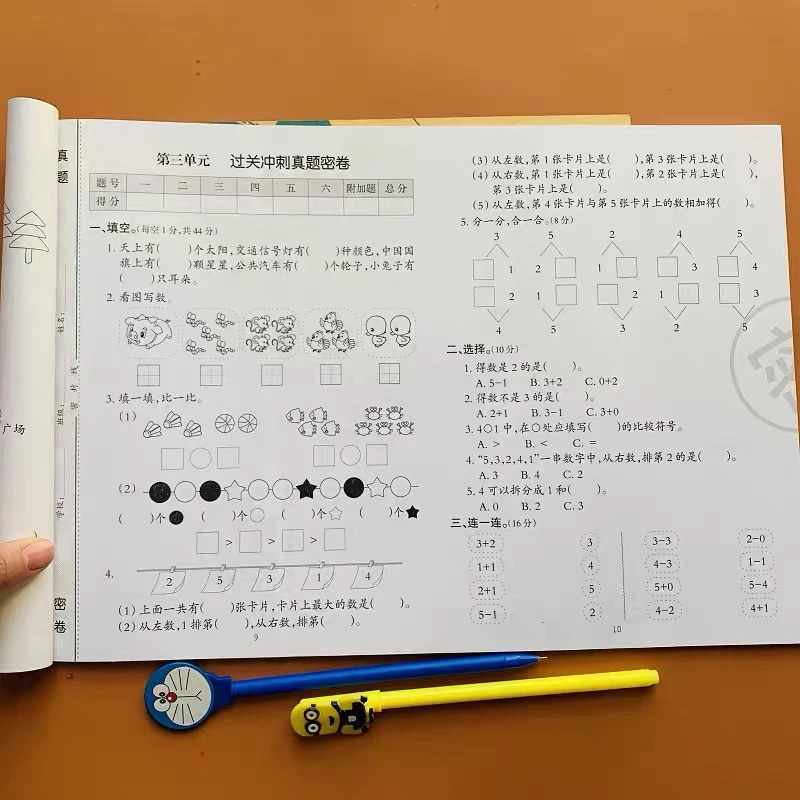 真
题
姓名:
班级:
学校:
密 封 线
密
卷
广场
第三单元 过关冲刺真题密卷
题号 一 二 三 四 五 六 附加题 总分
得分
一、填空。(每空1分,共44分)
1. 天上有( )个太阳,交通信号灯有( )种颜色,中国国
旗上有( )颗星星,公共汽车有( )个轮子,小兔子有
( )只耳朵。
2. 看图写数。
3. 填一填,比一比。
(1)
(2)
( )个● ( )个○ ( )个☆ ( )个★
□>□>□>□
4.
2 5 3 1 4
(1) 上面一共有( )张卡片,卡片上最大的数是( )。
(2) 从左数,1排第( ),从右数,排第( )。
9
(3) 从左数,第1张卡片上是( ),第3张卡片上是( )。
(4) 从右数,第1张卡片上是( ),第2张卡片上是( ),
第3张卡片上是( )。
(5) 从左数,第4张卡片与第5张卡片上的数相加得( )。
5. 分一分,合一合。(8分)
3 5 2 4 5
□ 1 2 □ 1 □ □ 3 □ 4
□ 2 1 □ □ 2 1 □ □ 3
4 5 3 2 5
二、选择。(10分)
1. 得数是2的是( )。
A. 5−1 B. 3+2 C. 0+2
2. 得数不是3的是( )。
A. 2+1 B. 3−1 C. 3+0
3. 4○1中,在○处应填写( )的比较符号。
A. > B. < C. =
4. “5,3,2,4,1”一串数字中,从右数,排第2的是( )。
A. 3 B. 4 C. 2
5. 4可以拆分成1和( )。
A. 0 B. 2 C. 3
三、连一连。(16分)
3+2 3 3−3 2−0
1+1 4 4−3 1−1
2+1 5 5+0 5−4
5−1 2 4−2 4+1
10